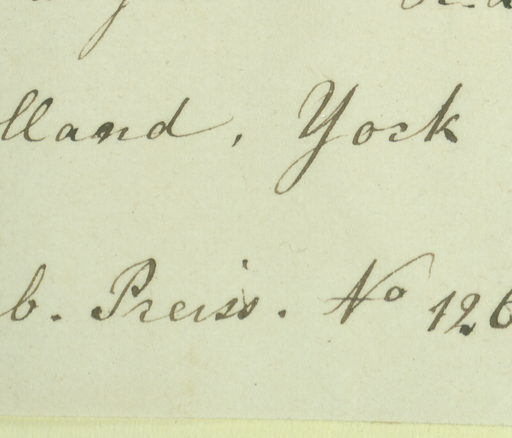 lland, York
b. Preiss. No 126